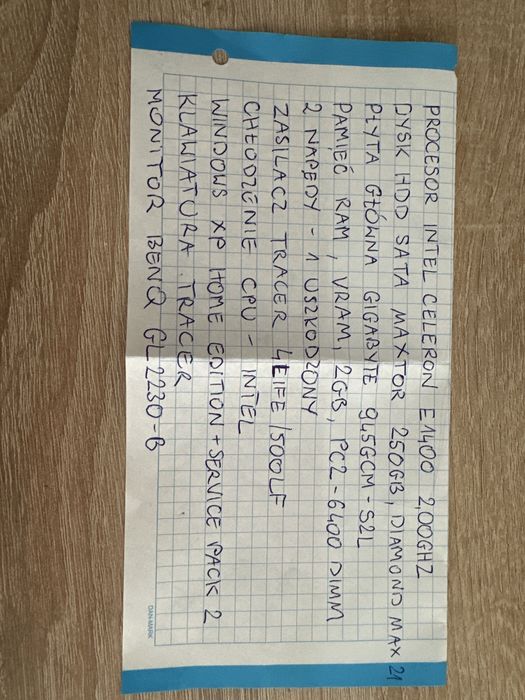 PROCESOR INTEL CELERON E1400 2,00GHZ
DYSK HDD SATA MAXTOR 250GB, DIAMOND MAX 21
PŁYTA GŁÓWNA GIGABYTE 945GCM-S2L
PAMIĘĆ RAM, VRAM, 2GB, PC2-6400 DIMM
2 NAPĘDY - 1 USZKODZONY
ZASILACZ TRACER 4EIFE/500LF
CHŁODZENIE CPU - INTEL
WINDOWS XP HOME EDITION + SERVICE PACK 2
KLAWIATURA TRACER
MONITOR BENQ GL2230-B
DAN-MARK